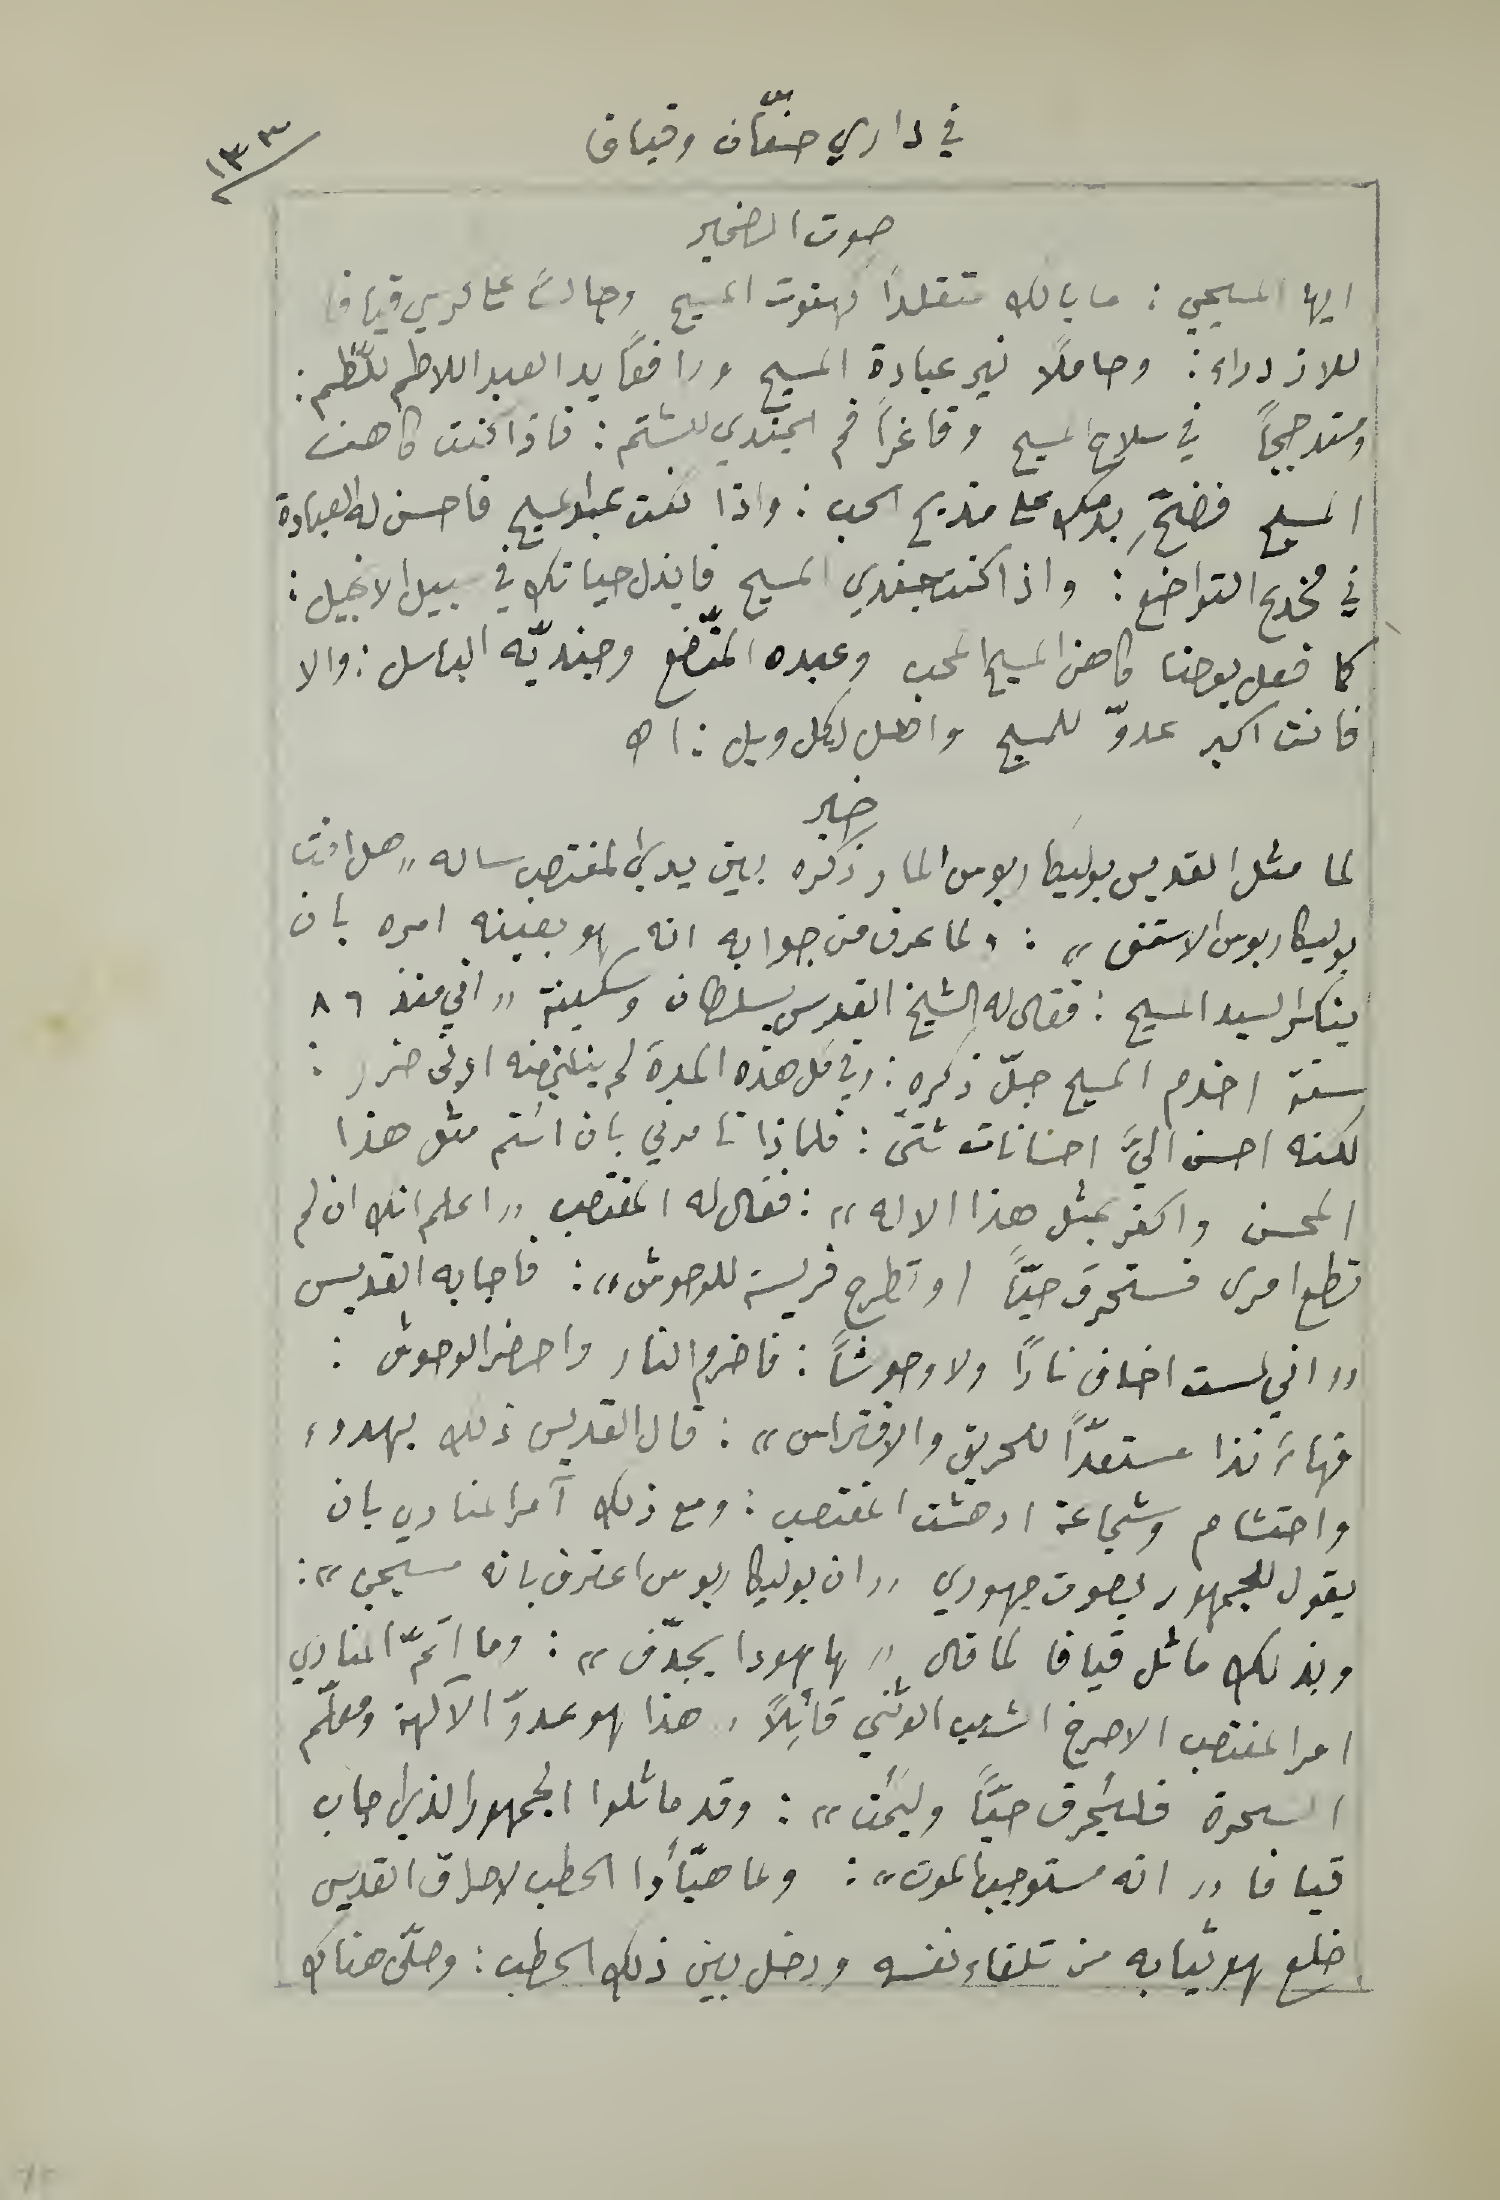 في داري حنّان وقيافا
١٣٣
صوت الضمير
ايها المسيحي : ما بالك متقلدًا كهنوت المسيح وجالسًا على كرسي قيافا
للازدراء : وحاملًا نير عبادة المسيح ورافعًا يد العبد اللاطم للّطم :
ومتدججًا في سلاح المسيح وفاغرًا فم الجندي للشتم : فاذا كنت كاهن
المسيح فضحِّ بدمك على مذبح الحب : واذا كنت عبد المسيح فاحسن له العبادة
في مخدع التواضع : واذا كنت جندي المسيح فابذل حياتك في سبيل الانجيل :
كما فعل يوحنا كاهن المسيح المحب وعبده المتّضع وجنديّه الباسل : والا
فانت اكبر عدوّ للمسيح واهل لكل ويل : اه
خبر
لما مثل القديس بوليكاربوس المار ذكره بين يدي المغتصب ساله „ هل انت
بوليكاربوس الاسقف „ : ولما عرف من جوابه انه هو بعينه امره بان
ينكر السيد المسيح : فقال له الشيخ القديس بسلطان وسكينة „ اني منذ ٨٦
سنة اخدم المسيح جلّ ذكره : وفي كل هذه المدة لم ينلني منه ادنى ضرر :
لكنه احسن اليَّ احسانات شتى : فلماذا تامرني بان اشتم مثل هذا
المحسن واكفر بمثل هذا الاله „ : فقال له المغتصب „ اعلم انك ان لم
تطع امري فستحرق حيًّا او تطرح فريسة للوحوش „ : فاجابه القديس
„ اني لست اخاف نارًا ولا وحوشًا : فاضرم النار واحضر الوحوش :
فها ءَنذا مستعدًّا للحريق والافتراس „ : قال القديس ذلك بهدوء
واحتشام وشجاعة ادهشت المغتصب : ومع ذلك آمر المنادي بان
يقول للجمهور بصوت جهوري „ ان بوليكاربوس اعترف بانه مسيحي „ :
وبذلك ماثل قيافا لما قال „ ها هوذا يجدّف „ : وما اتمّ المنادي
امر المغتصب الا صرخ الشعب الوثني قائِلًا „ هذا هو عدوّ الآلهة ومعلّم
السحرة فليُحرق حيًّا وليَمُت „ : وقد ماثلوا الجمهور الذي اجاب
قيافا „ انه مستوجب الموت „ : ولما هيّأوا الحطب لاحراق القديس
خلع هو ثيابه من تلقاء نفسه ودخل بين ذلك الحطب : وصلّى هناك